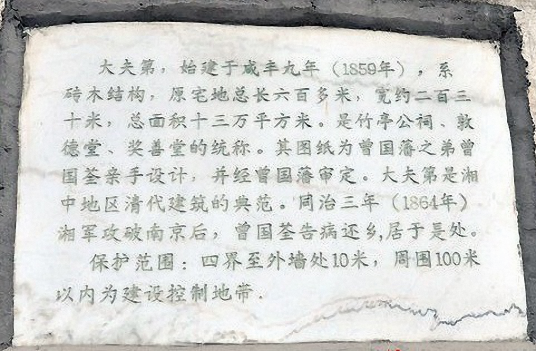 大夫第，始建于咸丰九年（1859年），系
砖木结构，原宅地总长六百多米，宽约二百三
十米，总面积十三万平方米。是竹亭公祠、敦
德堂、奖善堂的统称。其图纸为曾国藩之弟曾
国荃亲手设计，并经曾国藩审定。大夫第是湘
中地区清代建筑的典范。同治三年（1864年）
湘军攻破南京后，曾国荃告病还乡,居于是处。
保护范围：四界至外墙处10米，周围100米
以内为建设控制地带.